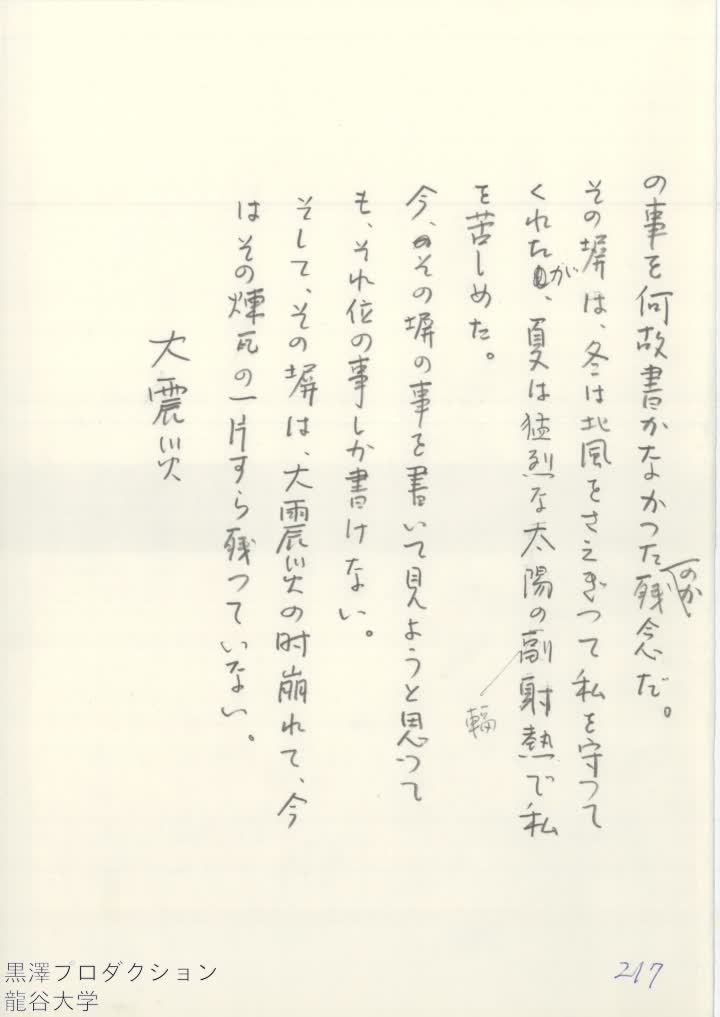 の事を何故書かなかつたのか残念だ。
その塀は、冬は北風をさえぎつて私を守つて
くれたが、夏は猛烈な太陽の副射熱で私
輻
を苦しめた。
今、その塀の事を書いて見ようと思つて
も、それ位の事しか書けない。
そして、その塀は、大震災の時崩れて、今
はその煉瓦の一片すら残つていない。
大震災
217
黒澤プロダクション
龍谷大学